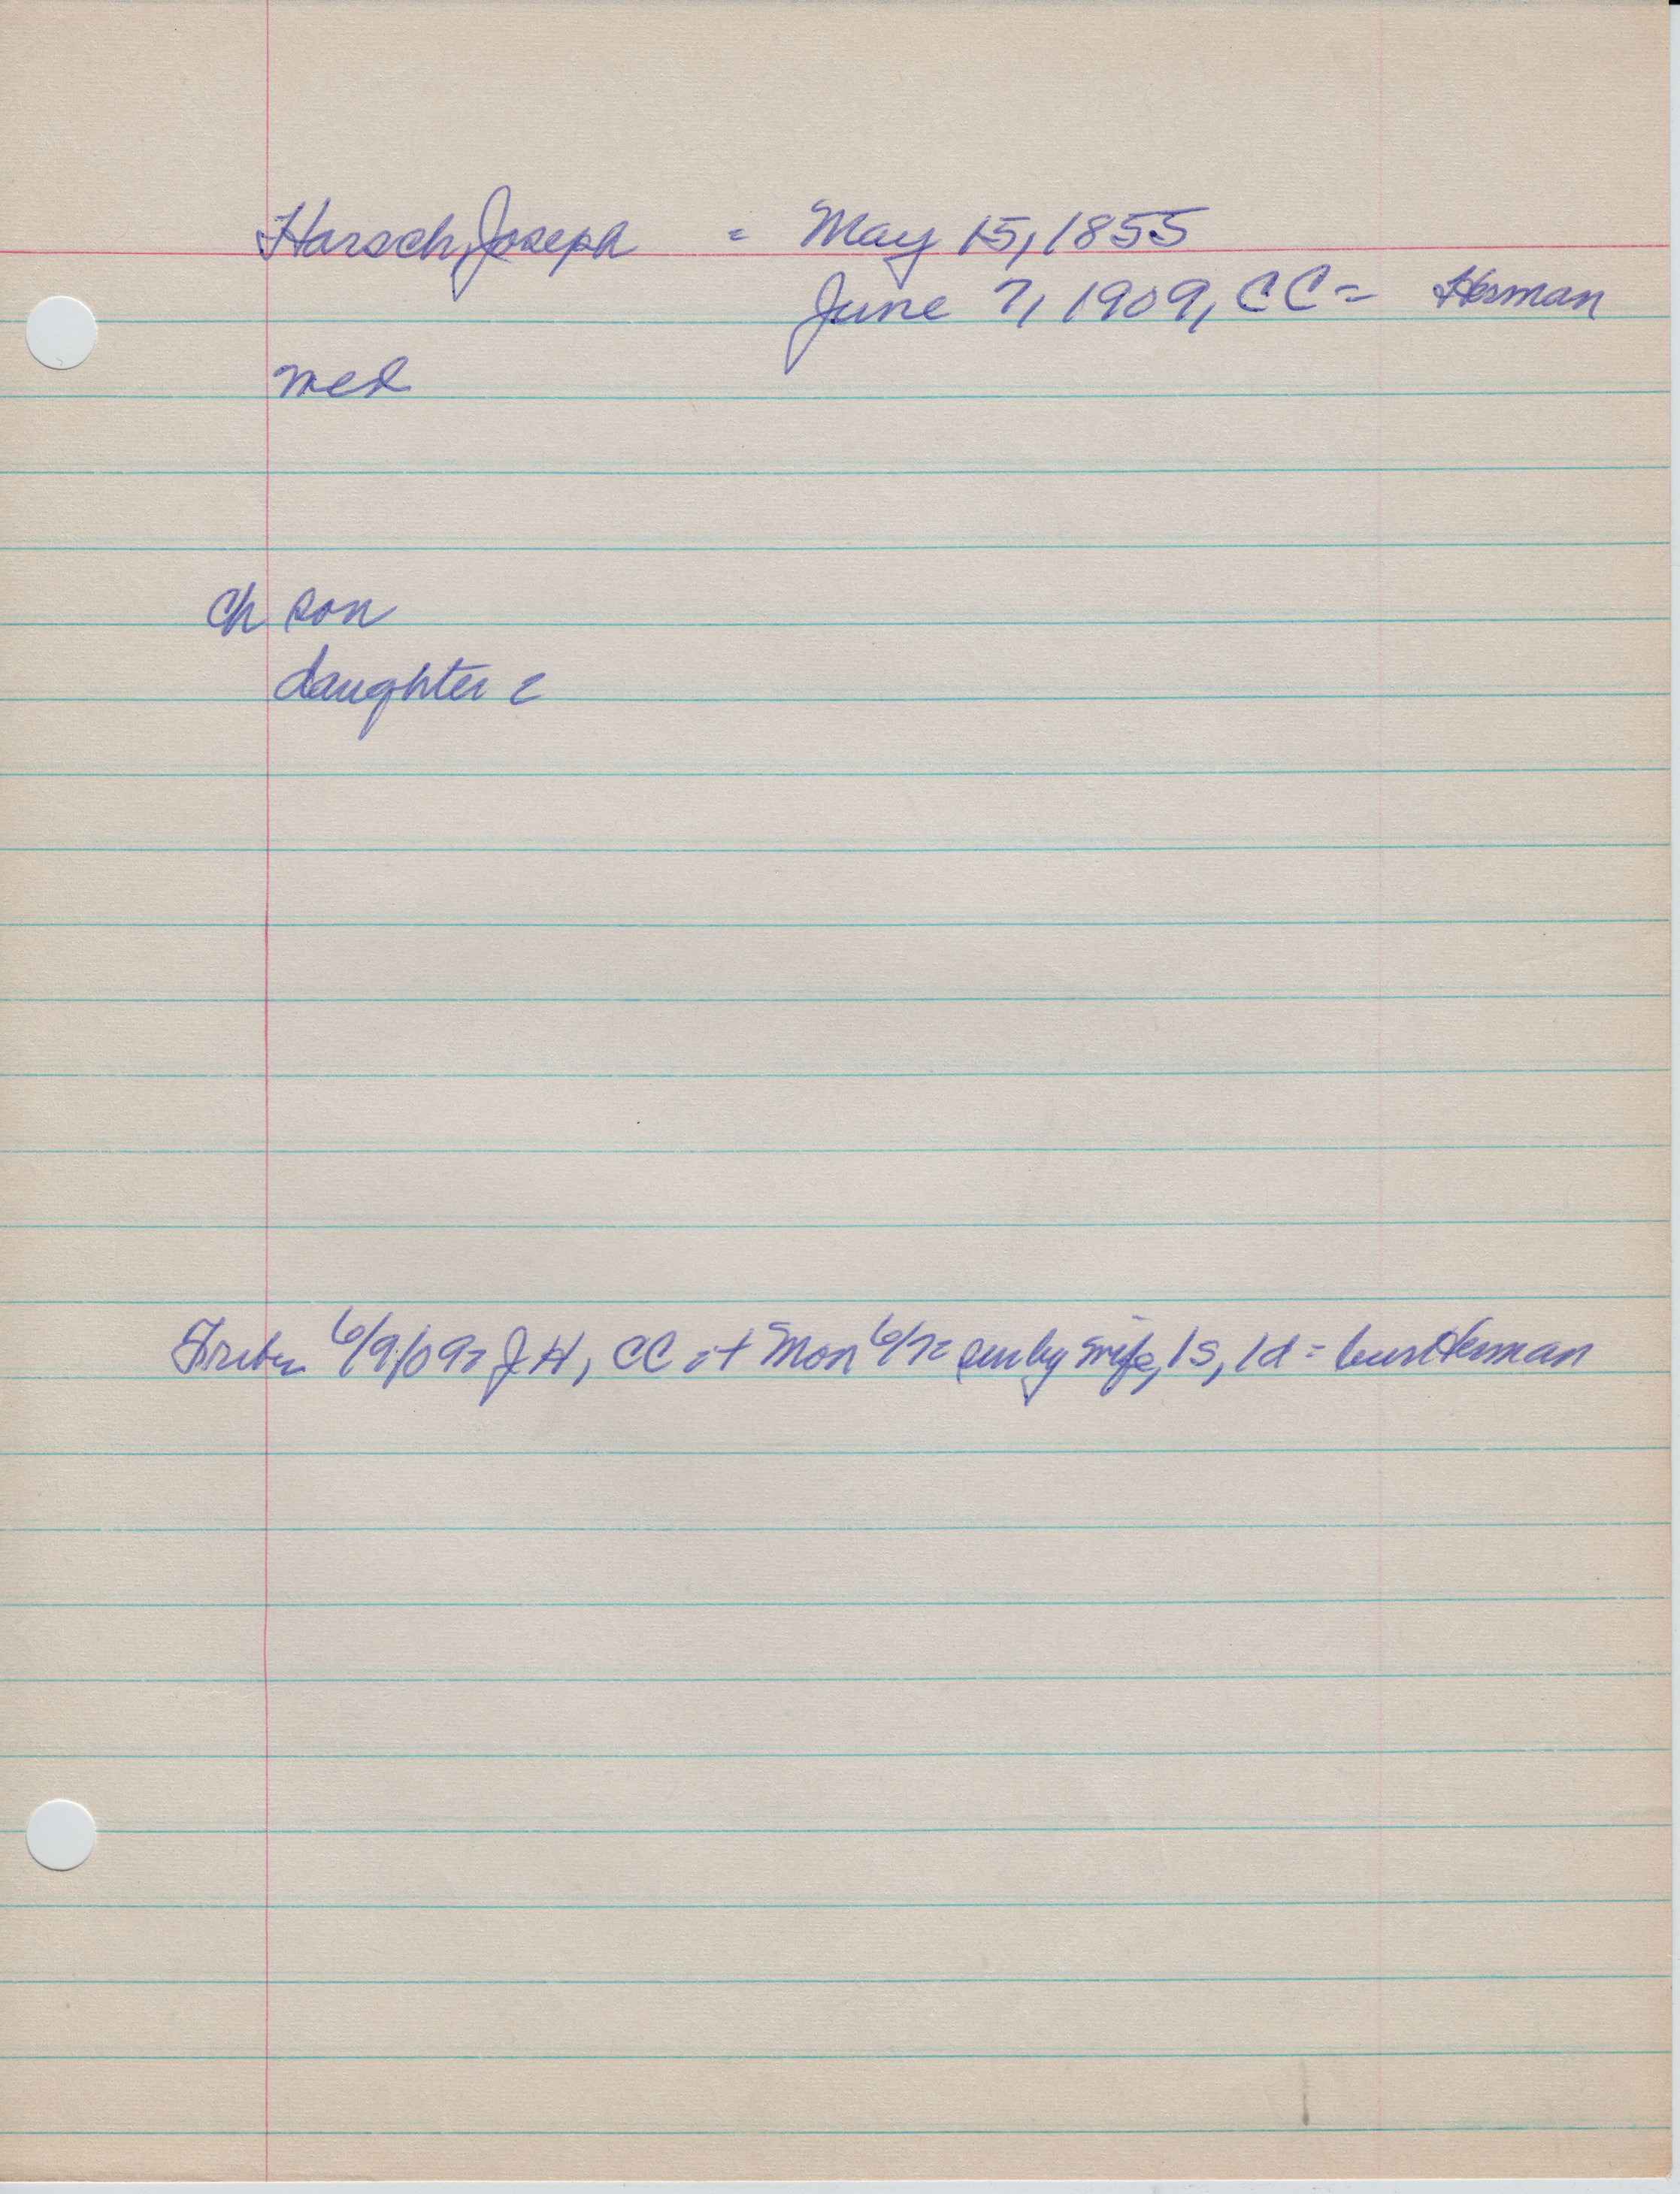 Harsch, Joseph = May 15, 1855
June 7, 1909, CC = Herman
med
ch son
daughter =
6/9/09 = J H, CC = + Mon 6/7 = sur by wife, 1s, 1d = bur Herman